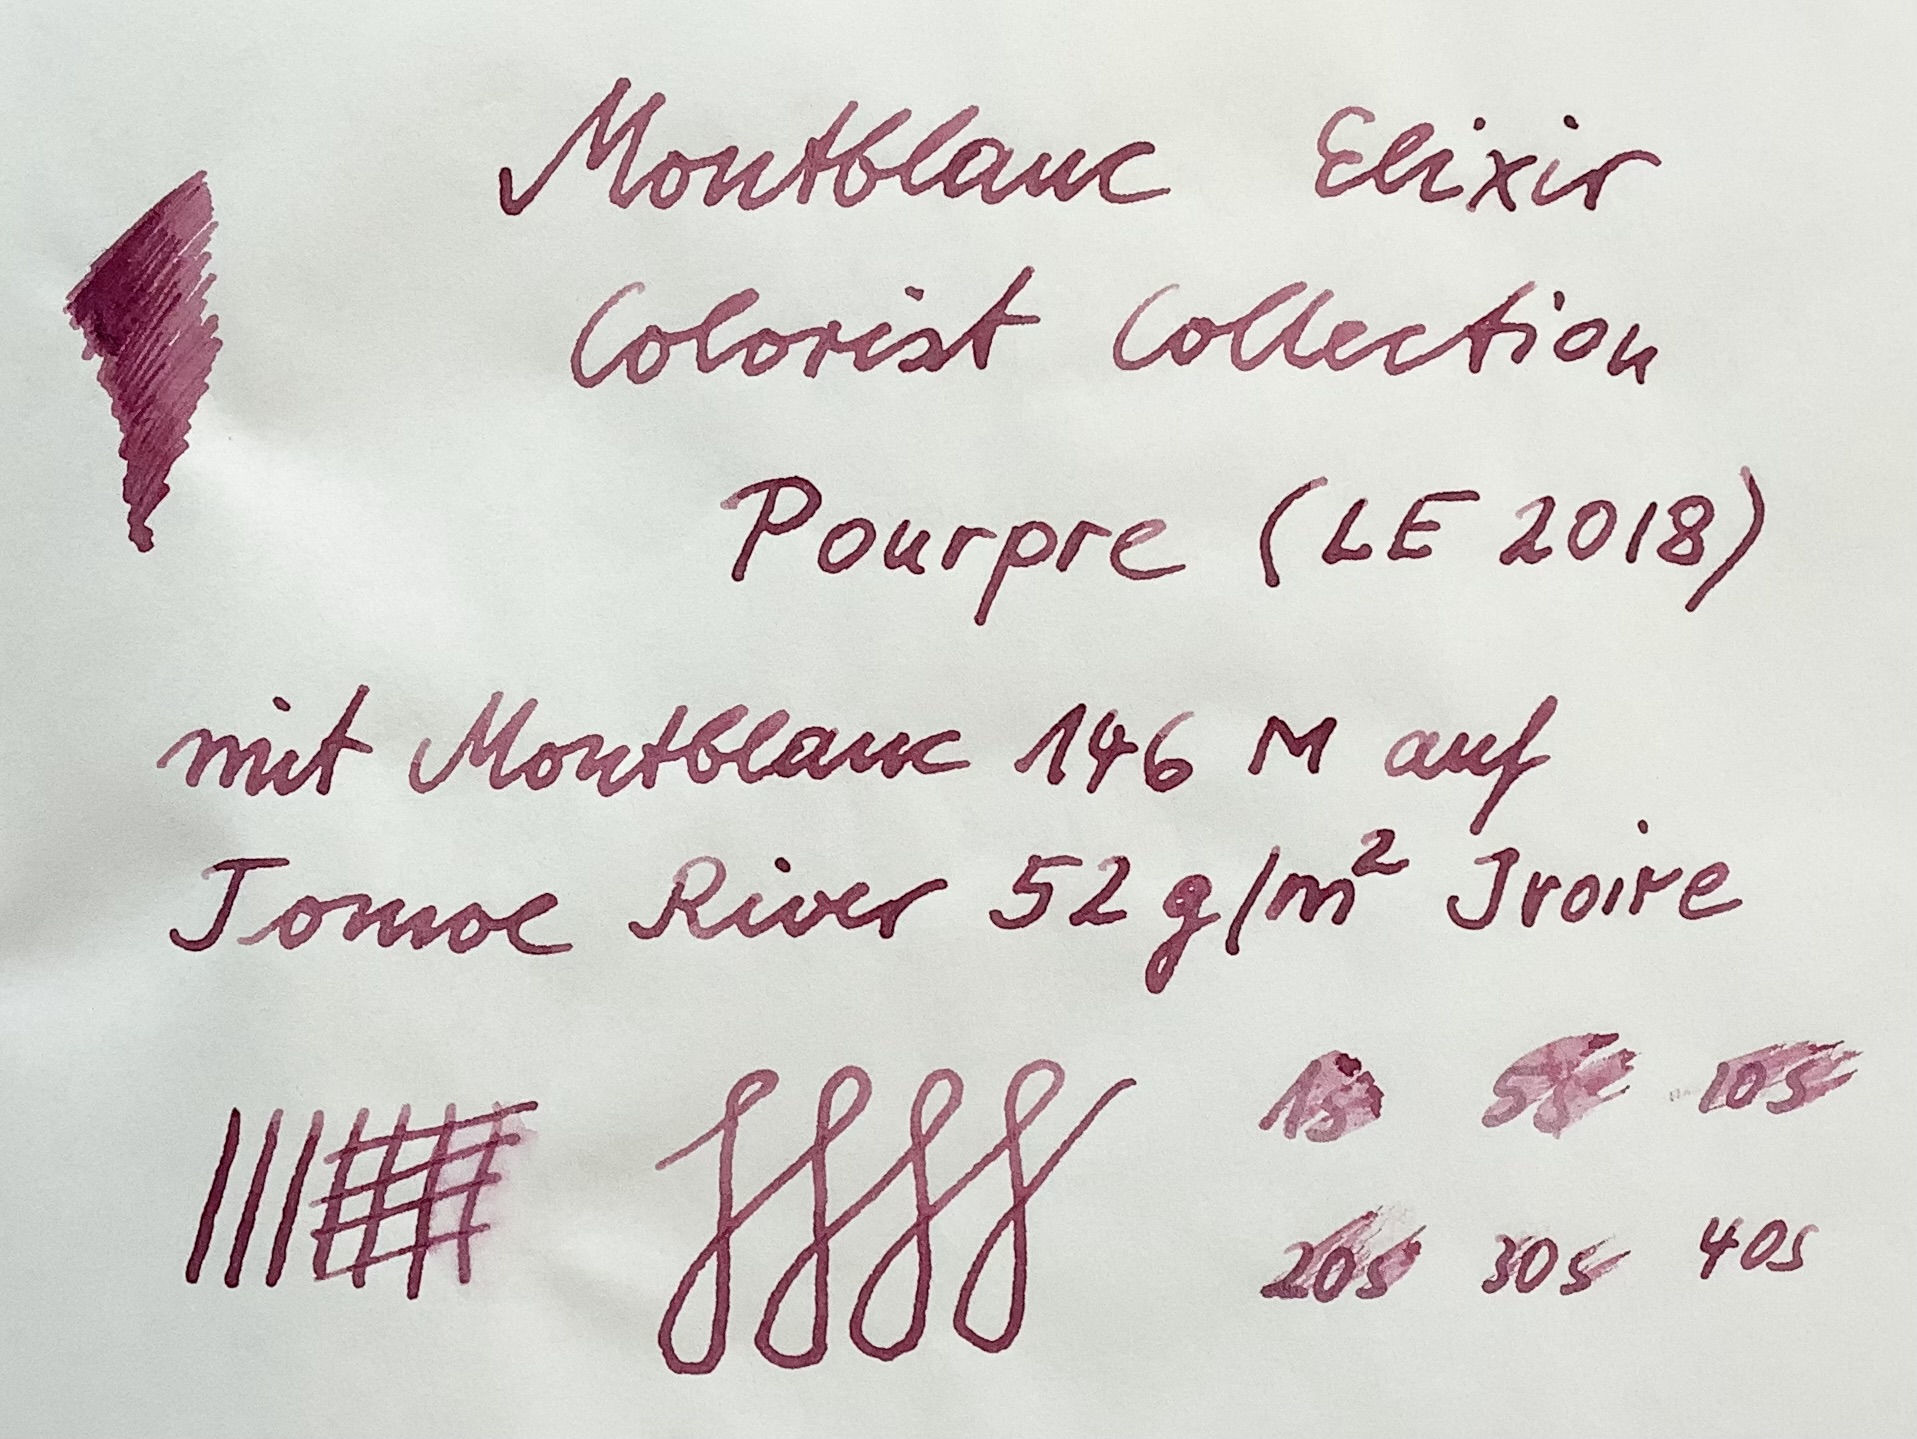 Montblanc Elixir
Colorist Collection
Pourpre (LE 2018)
mit Montblanc 146 M auf
Tomoe River 52 g/m² Ivoire
1s 5s 10s
20s 30s 40s